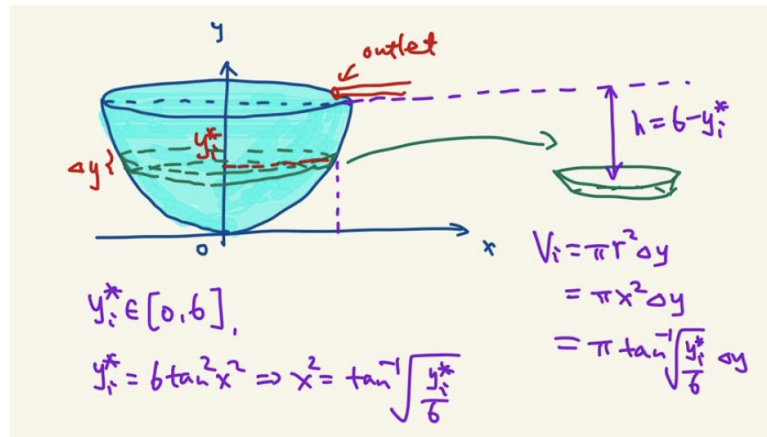 y
outlet
y_i^*
Δy{
h=6-y_i^*
0
x
V_i=πr²Δy
=πx²Δy
=π tan⁻¹√(y_i^*/6) Δy
y_i^*∈[0,6],
y_i^*=6tan²x² ⇒ x²= tan⁻¹√(y_i^*/6)